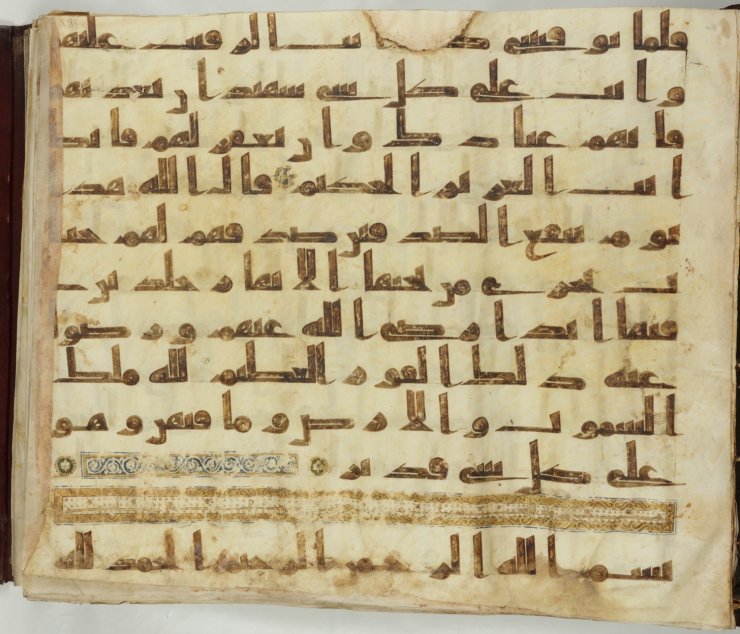 فلما توفيتني كنت انت الرقيب عليهم
وانت على كل شي شهيد ان تعذبهم
فانهم عبادك وان تغفر لهم فانك
انت العزيز الحكيم قال الله هذا
يوم ينفع الصدقين صدقهم لهم جنت
تجري من تحتها الانهر خلدين
فيها ابدا رضي الله عنهم ورضوا
عنه ذلك الفوز العظيم لله ملك
السموت والارض وما فيهن وهو
على كل شي قدير
بسم الله الرحمن الرحيم الحمد لله